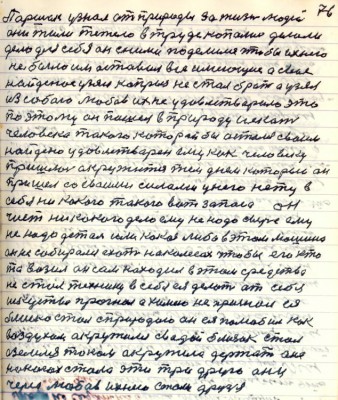 76
Паршек узнал от природы за жизнь людей
они жили тяжело в труде копались делали
дело для себя он с ними поделился чтобы ихнего
не было им оставил все имеющие а свое
найденое узял капрыз не стал брать а узял
из собою любов их не удовлетворило это
поэтому он пошел в природу искать
человека такого которой бы отого своим
найдено удовлитварен ему как человеку
пришлос окружится тем днем которы он
пришел со своими силами у него нету в
себя никокого такого вот запаса он
чист никакого дело ему не надо сырье ему
не надо деталь или какая либо в этом машина
он не собирал скот на колесах чтобы его кто
то возил он сам находил в этом средства
не стал технику в себя делать от себя
искуство прогнал а химию не признал он
близко стал с природою он ея полюбил как
воздухом окружился с водой близок стал
землею током окружила держать она
на ногах стала эти три друга они
через любов ихнею стали друзя